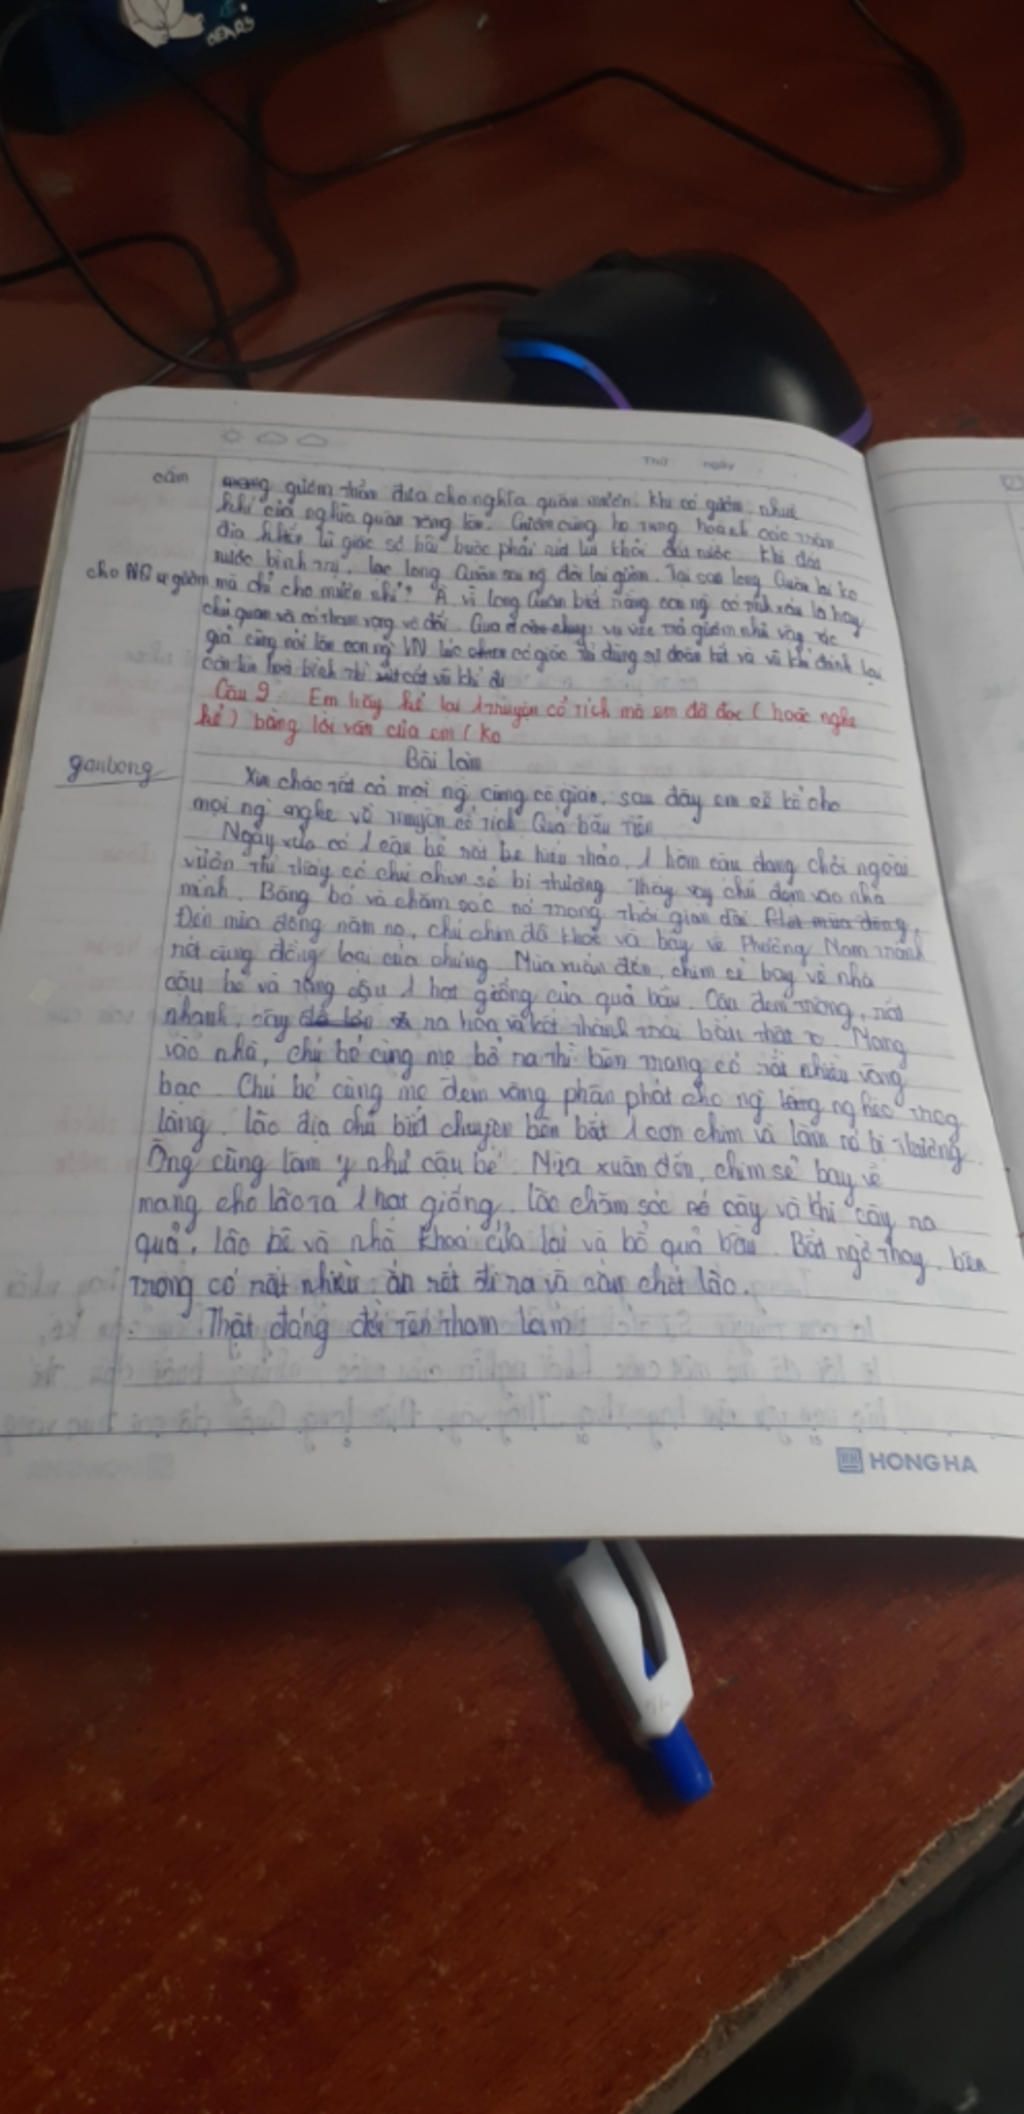 BEARS
Thứ ngày
cầm gươm thần đưa cho nghĩa quân mượn. Khi có gươm, nhuệ
khí của nghĩa quân tăng lên. Gươm cùng họ tung hoành các trận
địa khiến lũ giặc sợ hãi buộc phải rút lui khỏi đất nước. Khi đất
nước bình trị, Lạc Long Quân đòi lại gươm. Tại sao Long Quân lại ko
cho mà chỉ cho mượn nhỉ? À vì Long Quân biết rằng con ng có tính xấu là hay
chủ quan và có tham vọng vô đối. Qua vụ việc trả gươm như vậy tác
giả cũng nói lên con ng VN lúc có giặc thì dùng sự đoàn kết và vũ khí đánh lại
còn khi hoà bình thì cất vũ khí đi
Câu 9: Em hãy kể lại 1 truyện cổ tích mà em đã đọc (hoặc nghe
kể) bằng lời văn của em (ko
Bài làm
ganbong
Xin chào tất cả mọi ng cùng cô giáo, sau đây em sẽ kể cho
mọi ng nghe về truyện cổ tích Quả bầu tiên
Ngày xưa có 1 cậu bé rất bé hiếu thảo. 1 hôm cậu đang chơi ngoài
vườn thì thấy có chú chim sẻ bị thương. Thấy vậy chú đem vào nhà
mình. Băng bó và chăm sóc nó trong thời gian dài. Đến mùa đông,
Đến mùa đông năm nọ, chú chim đã khoẻ và bay về Phương Nam tránh
rét cùng đồng loại của chúng. Mùa xuân đến, chim sẻ bay về nhà
cậu bé và tặng cậu 1 hạt giống của quả bầu. Cậu đem trồng, rất
nhanh, cây đã lớn ra hoa và kết thành trái bầu thật to. Mang
vào nhà, chú bé cùng mẹ bổ ra thì bên trong có rất nhiều vàng
bạc. Chú bé cùng mẹ đem vàng phân phát cho ng làng nghèo trong
làng. Lão địa chủ biết chuyện bèn bắt 1 con chim và làm nó bị thương.
Ông cũng làm y như cậu bé. Mùa xuân đến, chim sẻ bay về
mang cho lão ta 1 hạt giống. Lão chăm sóc nó cây và khi cây ra
quả, lão bê về nhà khoá cửa lại và bổ quả bầu. Bất ngờ thay, bên
trong có rất nhiều rắn rết đi ra và cắn chết lão.
Thật đáng đời tên tham lam
HONG HA